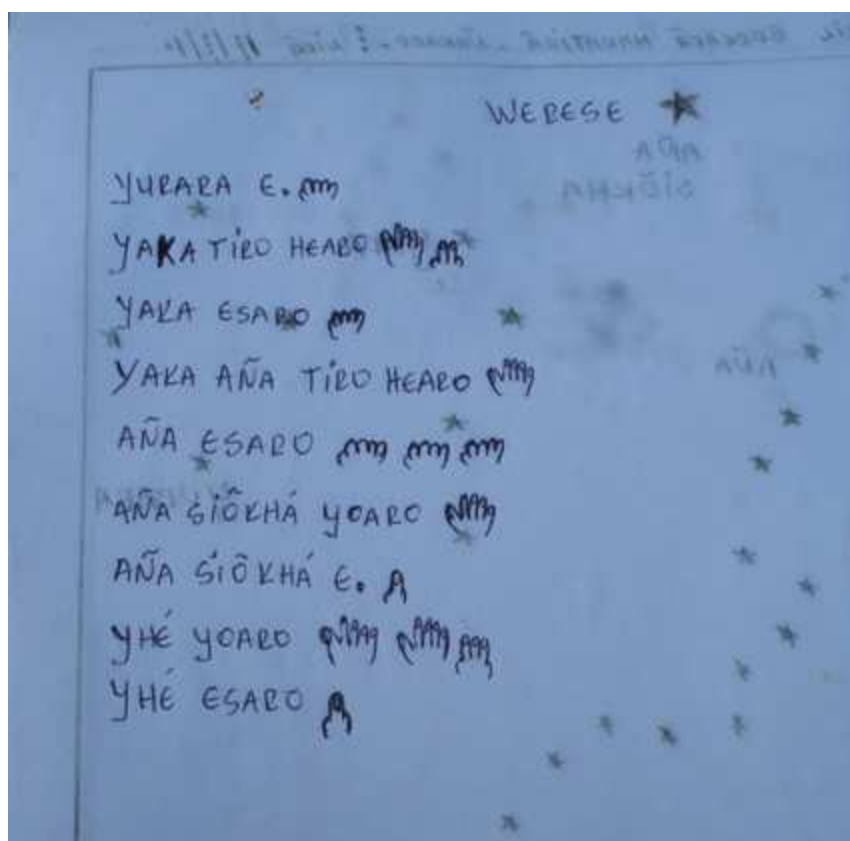 WERESE
YURARA E.
YAKA TIRO HEARO
YAKA ESARO
YAKA AÑA TIRO HEARO
AÑA ESARO
AÑA SIÕKHÁ YOARO
AÑA SIÕKHÁ E.
YHÉ YOARO
YHÉ ESARO